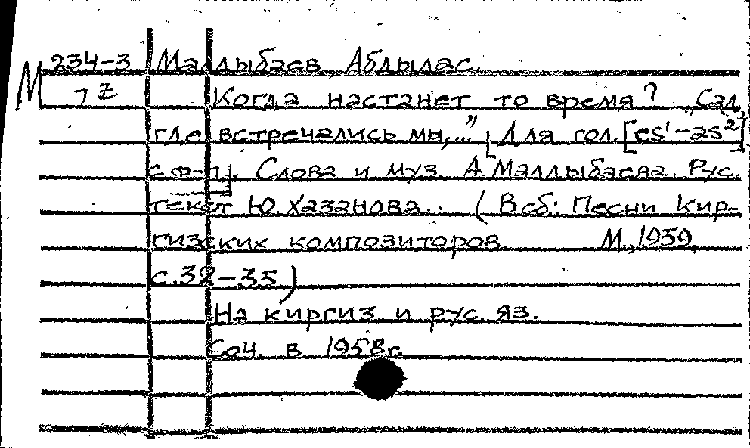 М 234-3 Малдыбаев Абдылас.
7 Z Когда настанет то время? „Сад
где встречались мы,..." Для гол. [es¹-as²]
с ф-п. Слова и муз. А Малдыбаева. Рус.
текст Ю. Хазанова.. (В сб: Песни Кир-
гизских композиторов. М., 1959,
с.32-35)
На киргиз и рус. яз.
Соч. в 1958г.